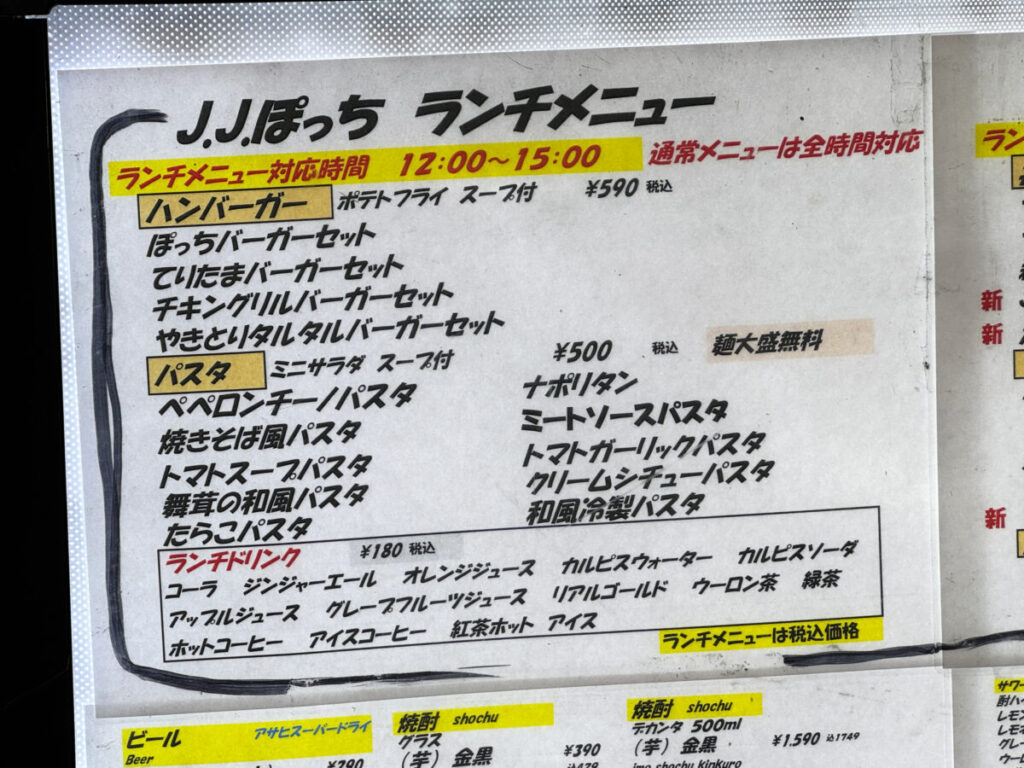 J.J.ぽっち ランチメニュー
ランチメニュー対応時間 12:00～15:00 通常メニューは全時間対応
ハンバーガー ポテトフライ スープ付 ¥590 税込
ぽっちバーガーセット
てりたまバーガーセット
チキングリルバーガーセット
やきとりタルタルバーガーセット
パスタ ミニサラダ スープ付 ¥500 税込 麺大盛無料
ペペロンチーノパスタ ナポリタン
焼きそば風パスタ ミートソースパスタ
トマトスープパスタ トマトガーリックパスタ
舞茸の和風パスタ クリームシチューパスタ
たらこパスタ 和風冷製パスタ
ランチドリンク ¥180 税込
コーラ ジンジャーエール オレンジジュース カルピスウォーター カルピスソーダ
アップルジュース グレープフルーツジュース リアルゴールド ウーロン茶 緑茶
ホットコーヒー アイスコーヒー 紅茶ホット アイス
ランチメニューは税込価格
ビール アサヒスーパードライ
Beer
¥390
焼酎 shochu
グラス
(芋) 金黒 ¥390
込429
焼酎 shochu
デカンタ 500ml
(芋) 金黒 ¥1.590 込1749
imo shochu kinkuro
ラン
新
新
新
サワー
酎ハイ
レモ
レモ
グレー
ウー